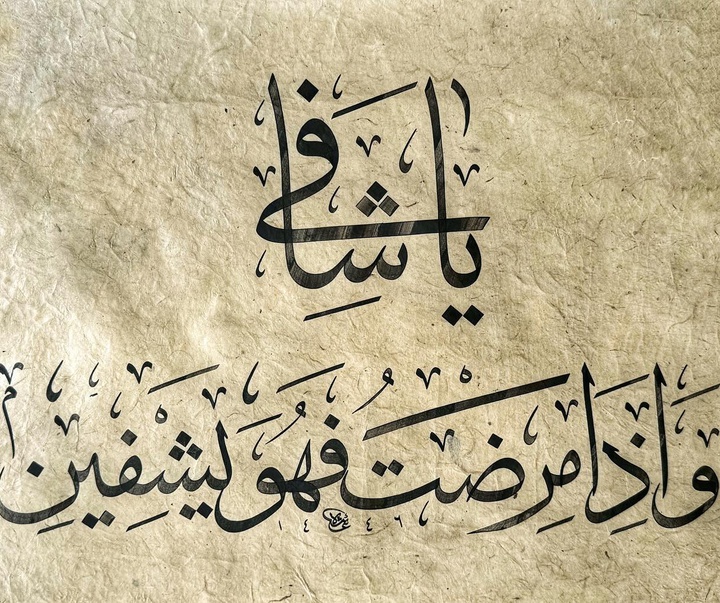 يَا شَافِي
وَاِذَا مَرِضْتُ فَهُوَ يَشْفِينِ
١٤٤٦